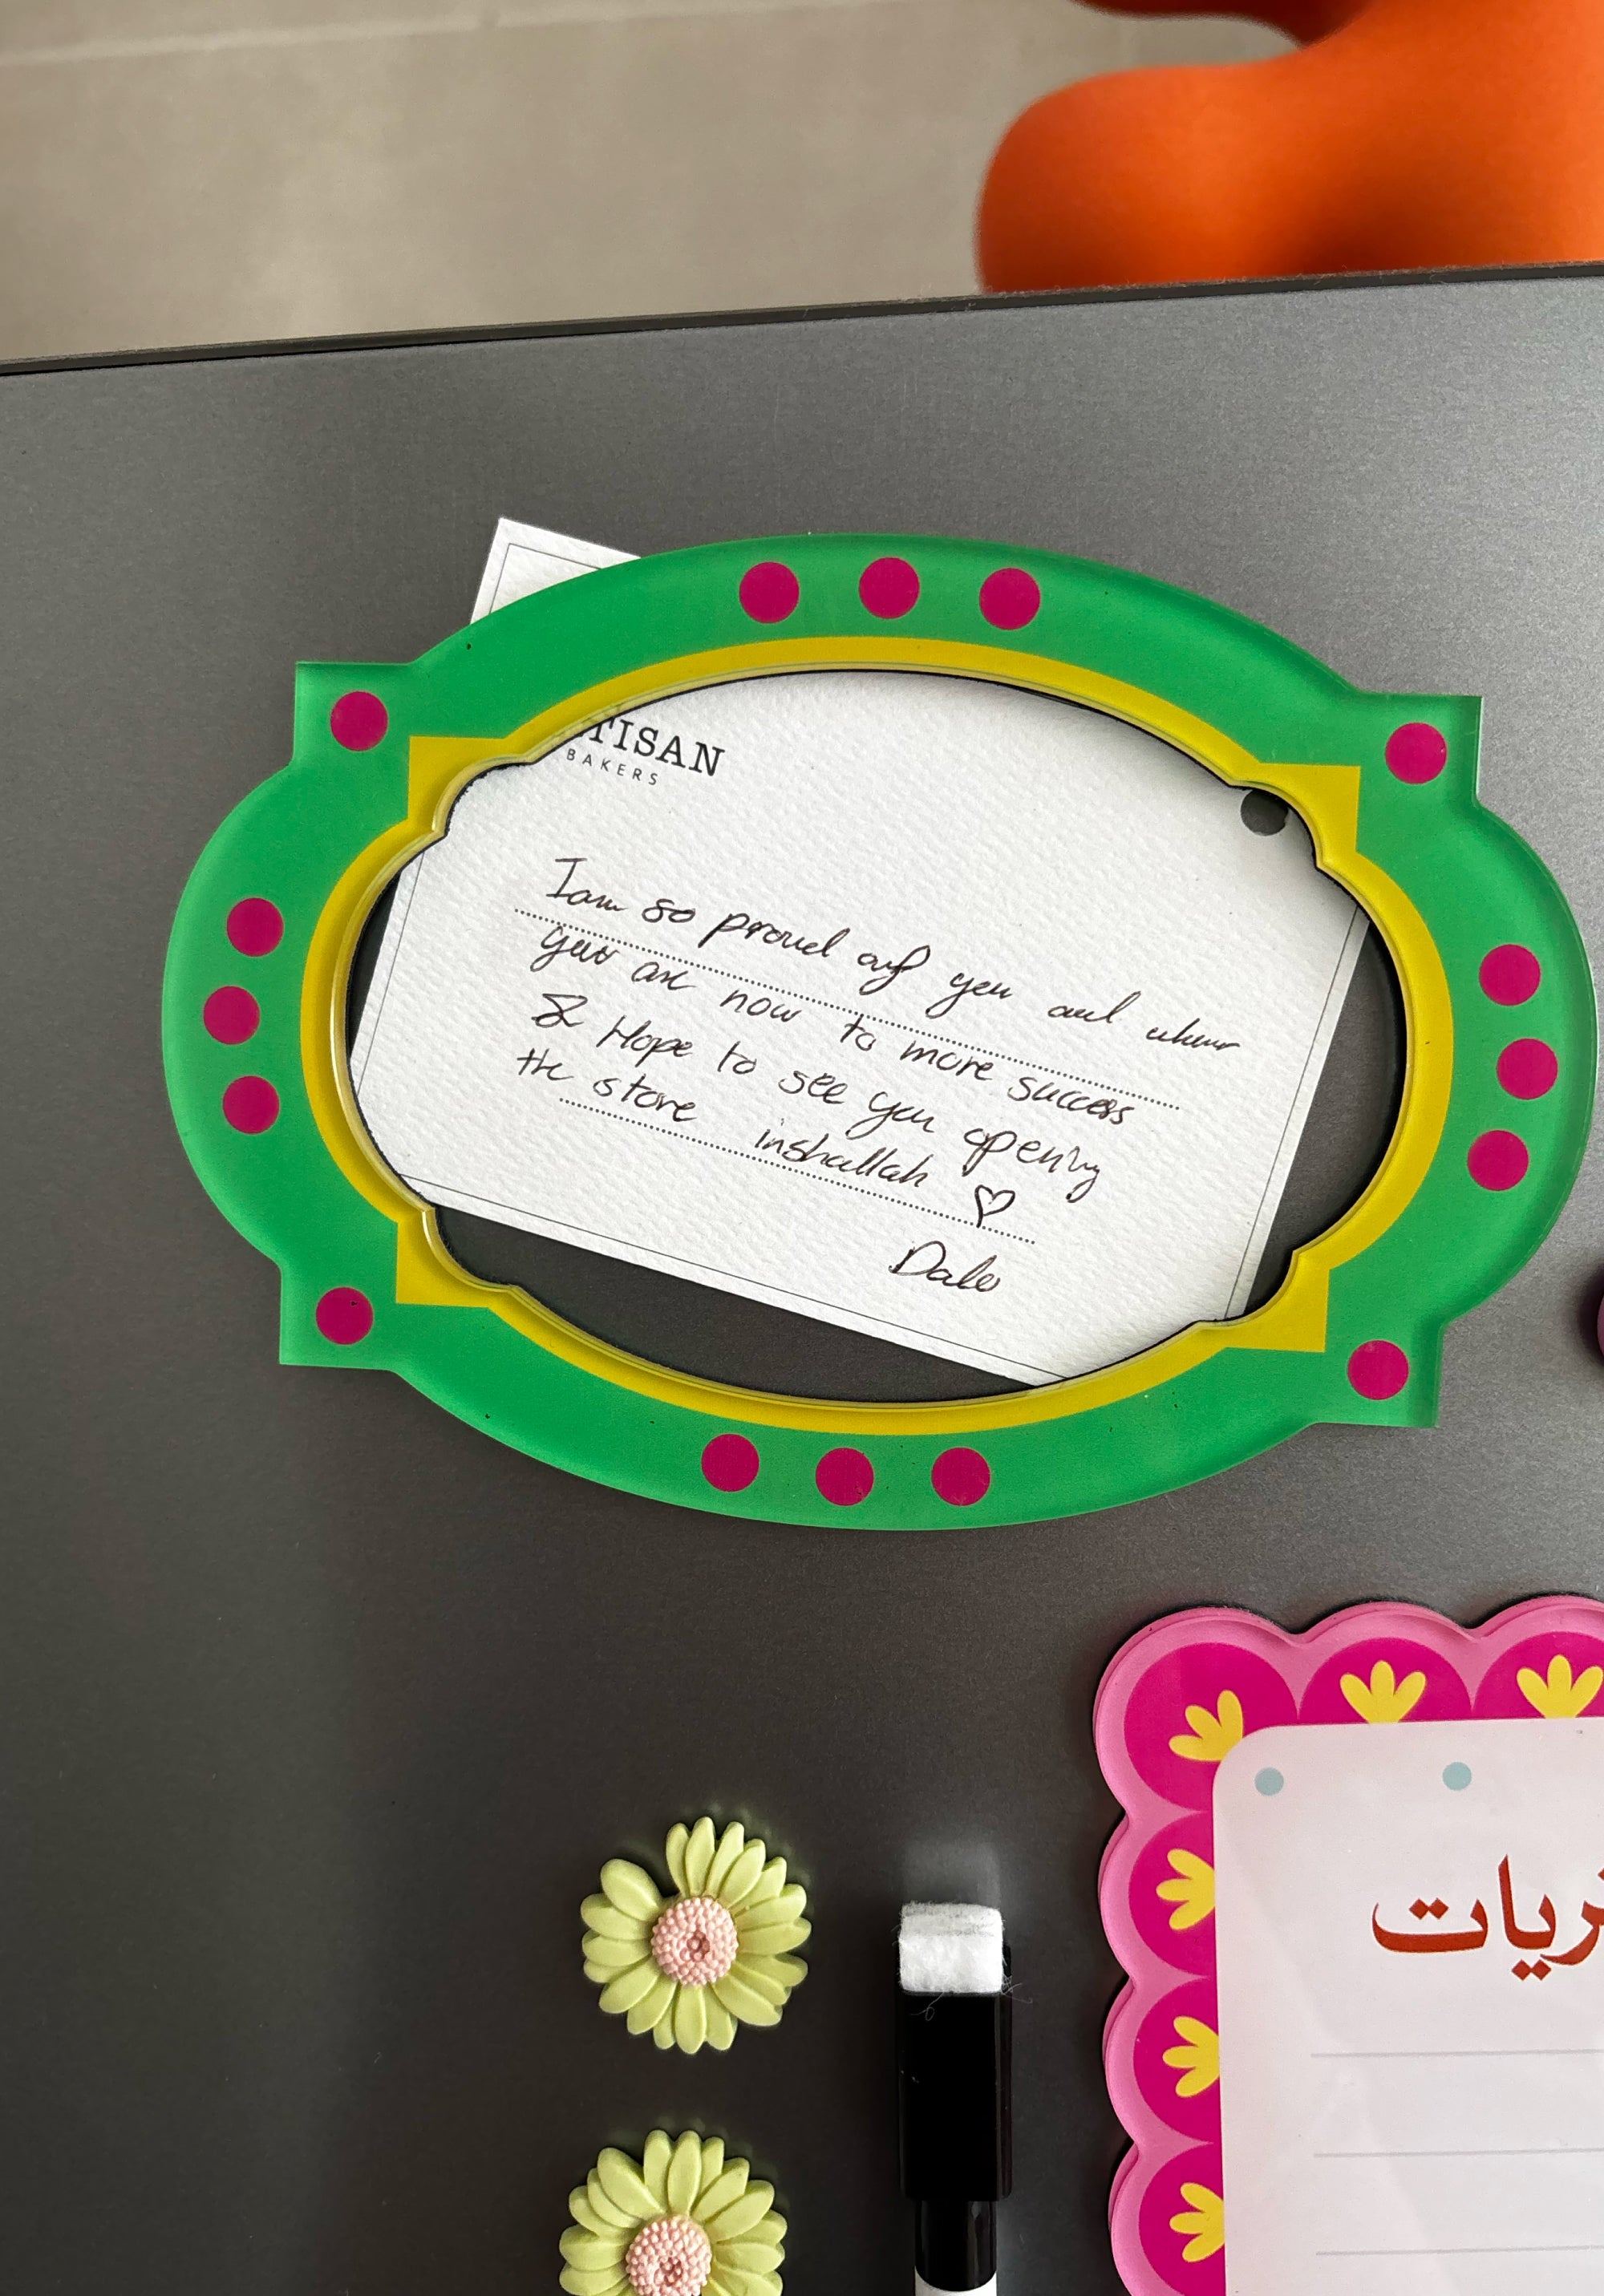 TISAN
BAKERS
I am so proud of you and where
you are now to more success
& Hope to see you opening
the store inshallah ♡
ريات